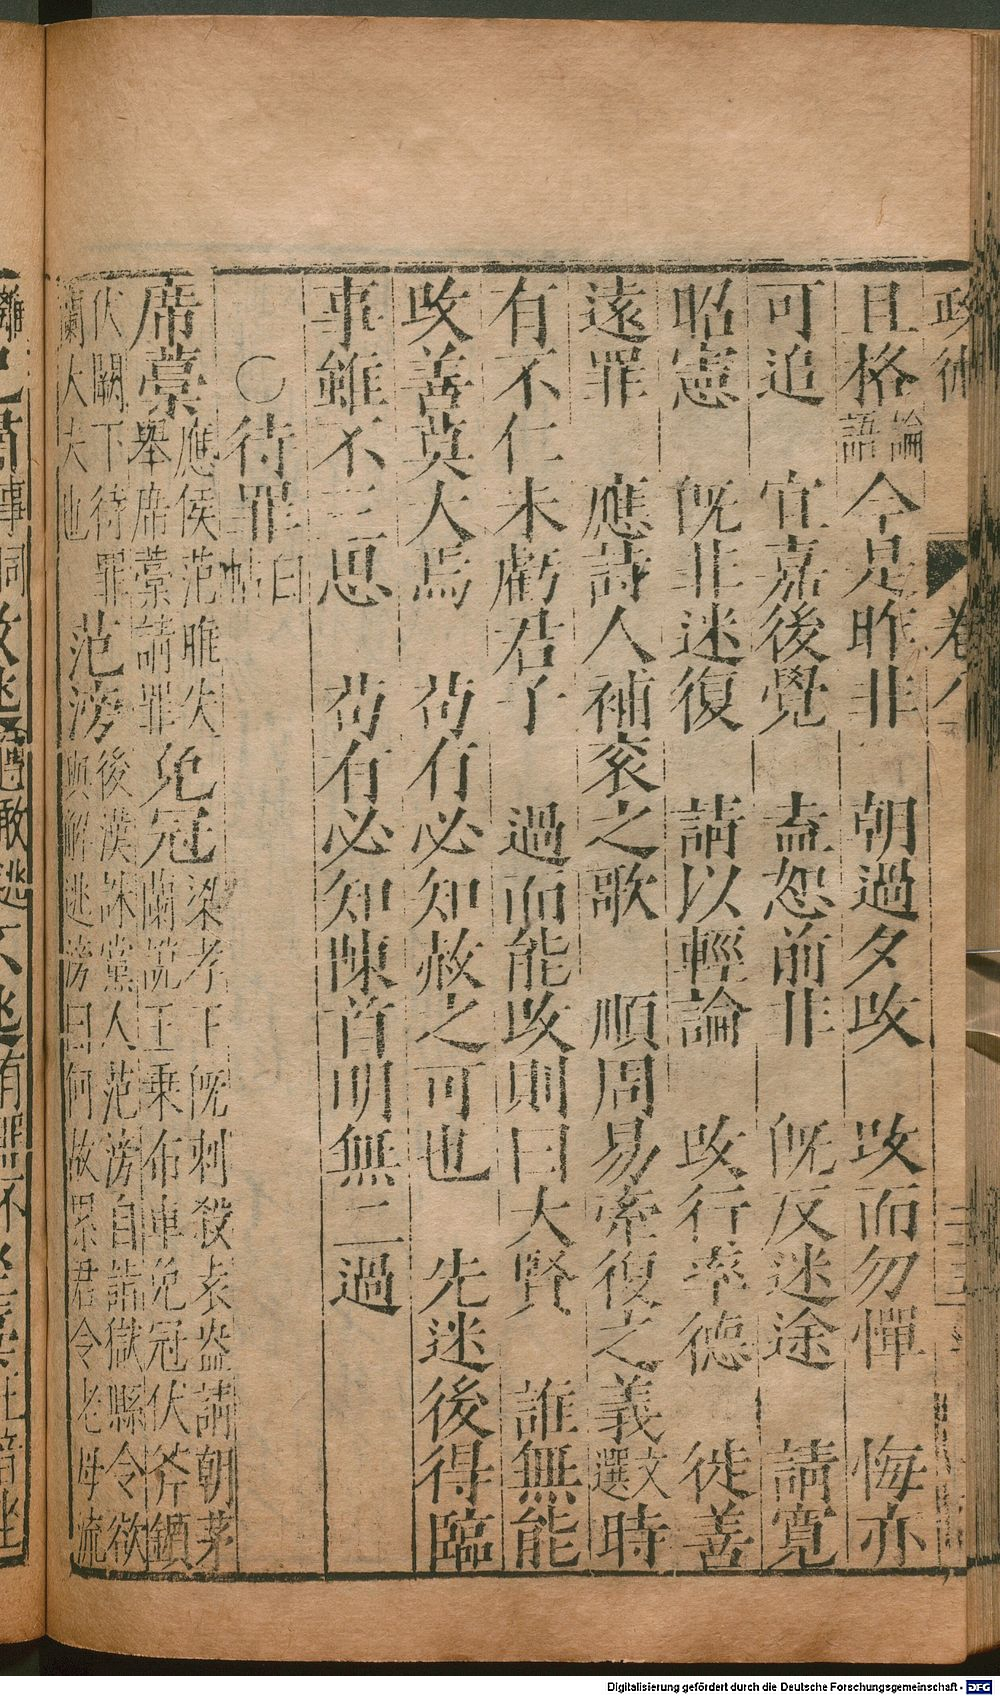 且格論語　今是昨非　朝過夕改　改而勿憚　悔亦
可追　宜嘉後覺　盍恕前非　旣反迷途　請寬
昭憲　旣非迷復　請以輕論　改行率德　徙善
遠罪　應詩人補衮之歌　順周易牽復之義文選時
有不仁未虧君子　過而能改則曰大賢　誰無能
改善莫大焉　苟有必知赦之可也　先迷後得臨
事雖不三思　苟有必知陳首明無二過
○待罪白帖
席藁應侯范睢失舉席藁請罪免冠梁孝王旣刺殺袁盎請朝茅蘭說王乗布車免冠伏斧鑕
伏闕下待罪蘭大夫也范滂後漢誅黨人范滂自詣獄縣令欲與解逃滂曰何故累君令老母流
卷八
Digitalisierung gefördert durch die Deutsche Forschungsgemeinschaft - DFG